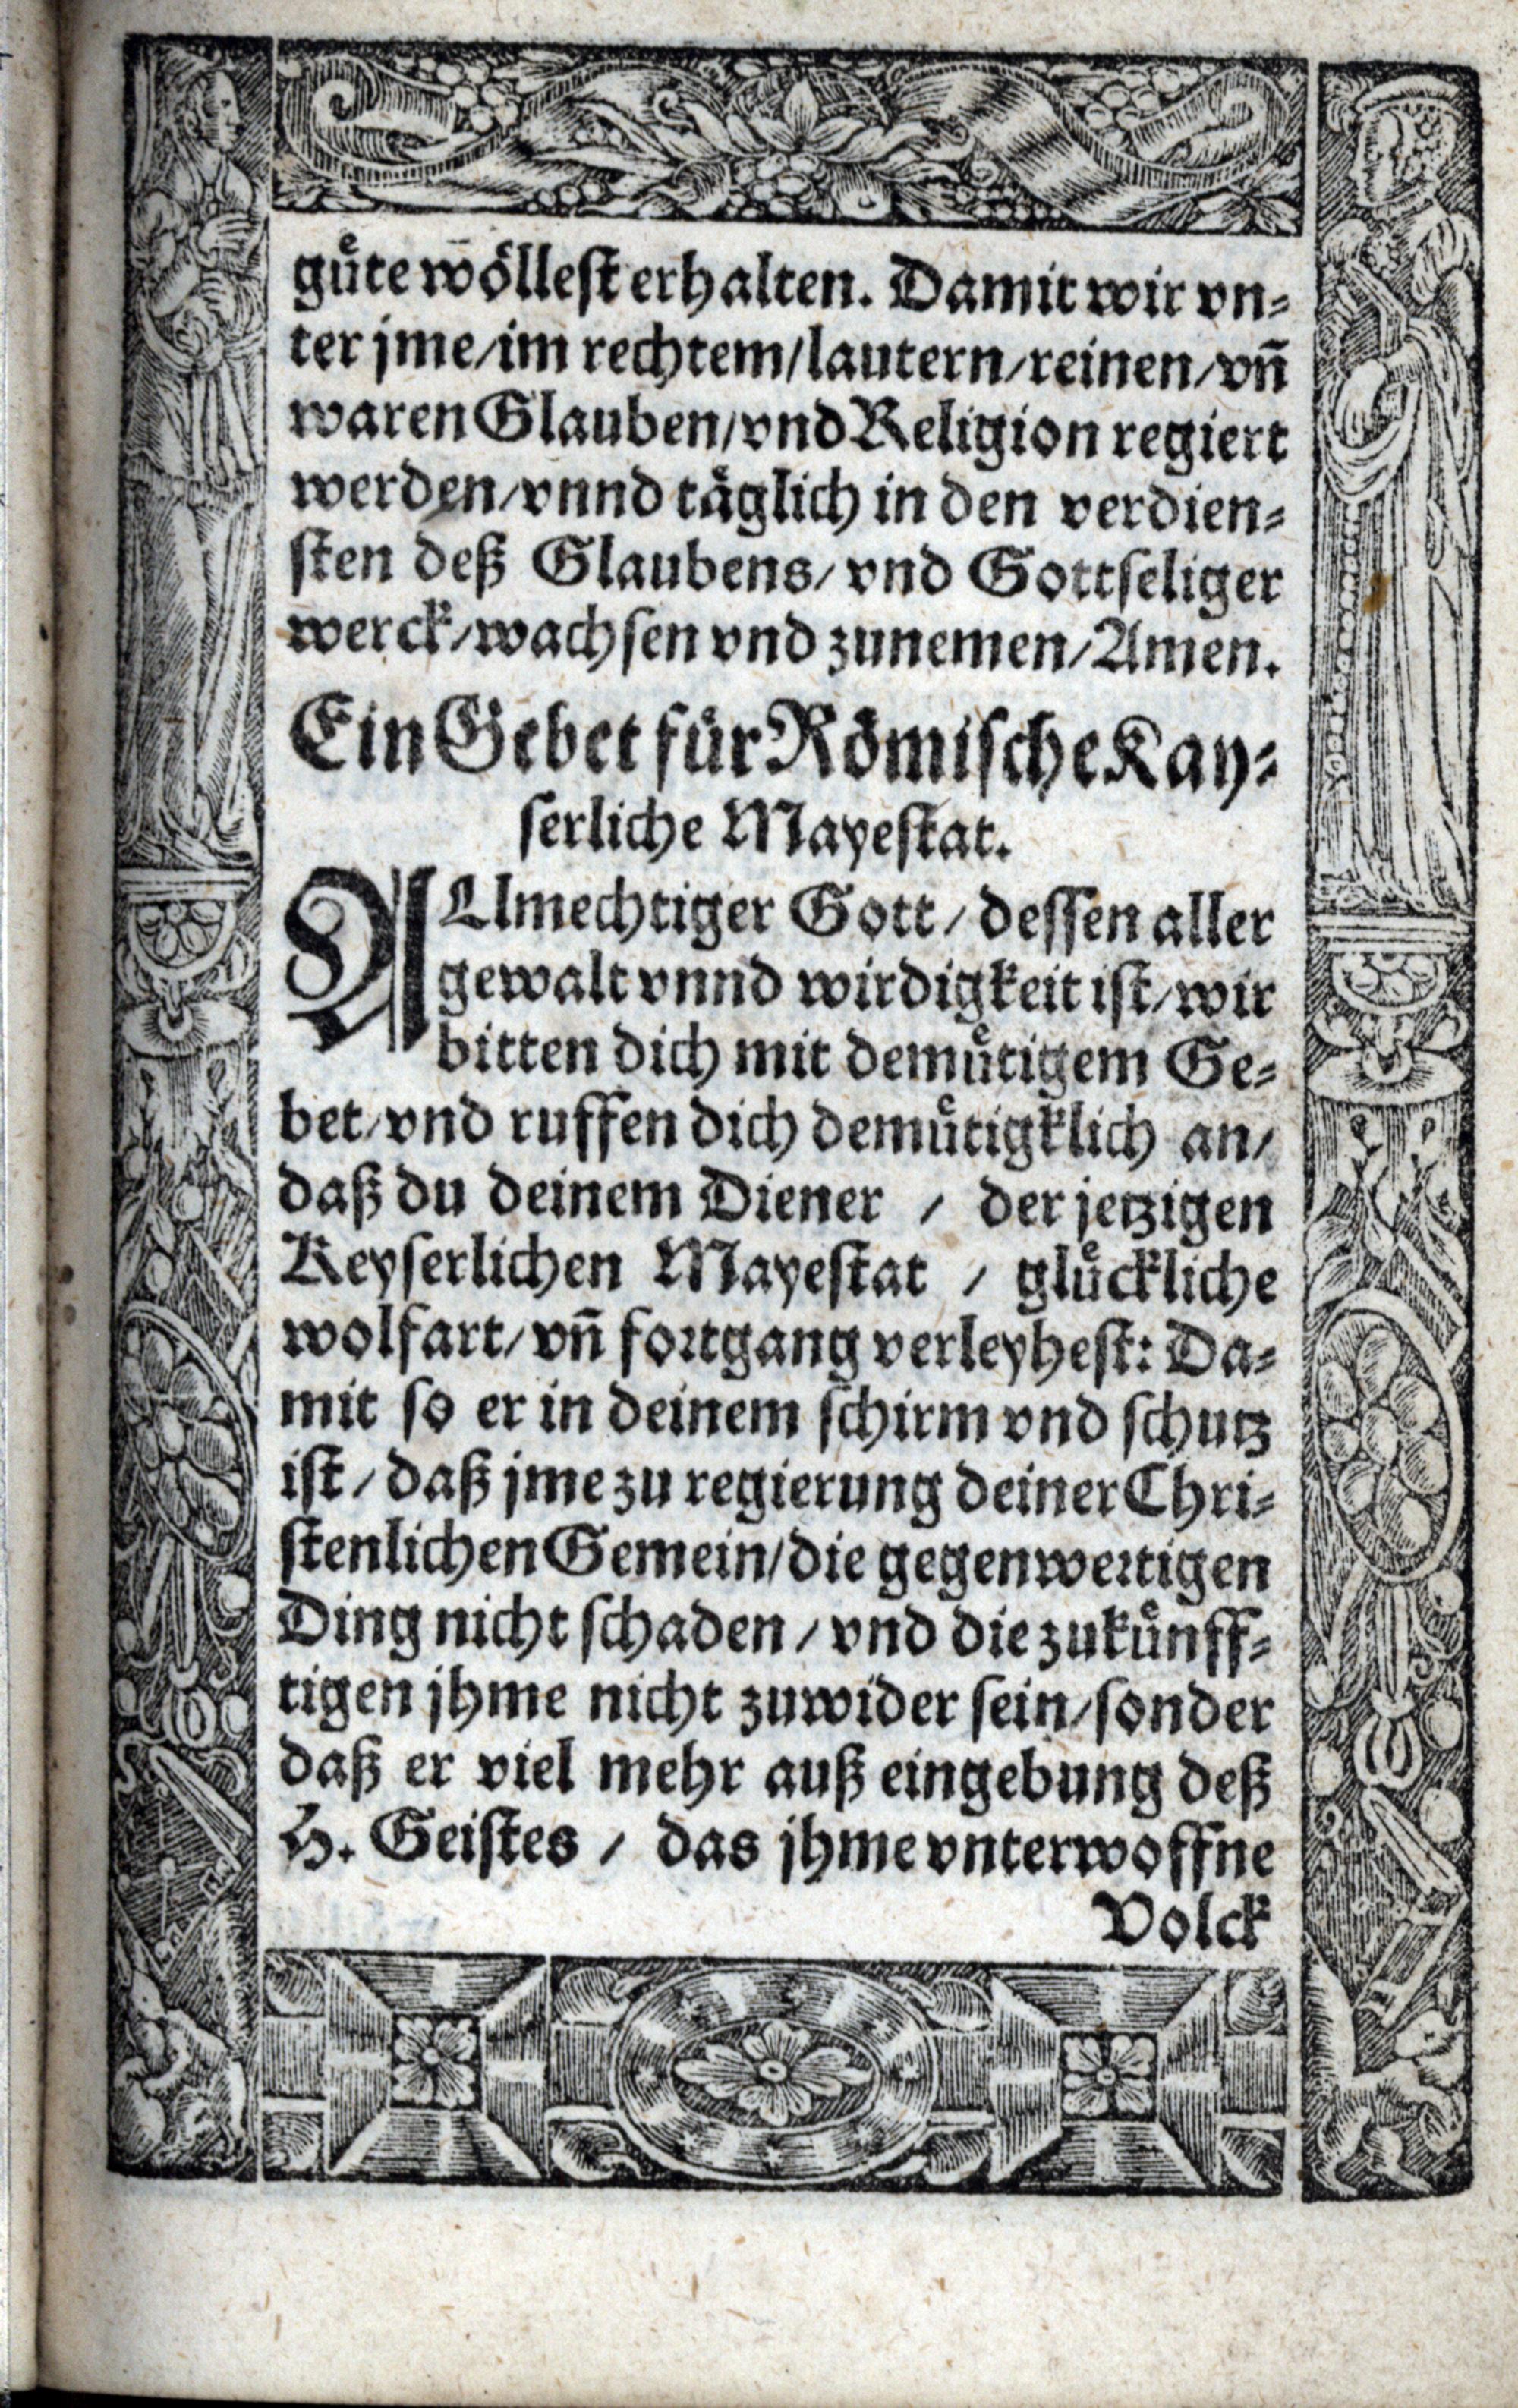 guͤte woͤllest erhalten. Damit wir vn⸗
ter jme/im rechtem/lautern/reinen/vñ
waren Glauben/vnd Religion regiert
werden/vnnd taͤglich in den verdien⸗
sten deß Glaubens/vnd Gottseliger
werck/wachsen vnd zunemen/Amen.
Ein Gebet fuͤr Roͤmische Kay⸗
serliche Mayestat.
ALlmechtiger Gott/dessen aller
gewalt vnnd wirdigkeit ist/wir
bitten dich mit demuͤtigem Ge⸗
bet/vnd ruffen dich demuͤtigklich an/
daß du deinem Diener / der jetzigen
Keyserlichen Mayestat / gluͤckliche
wolfart/vñ fortgang verleyhest: Da⸗
mit so er in deinem schirm vnd schutz
ist/daß jme zu regierung deiner Chri⸗
stenlichen Gemein/die gegenwertigen
Ding nicht schaden/vnd die zukuͤnff⸗
tigen jhme nicht zuwider sein/sonder
daß er viel mehr auß eingebung deß
H. Geistes / das jhme vnterwoffne
Volck